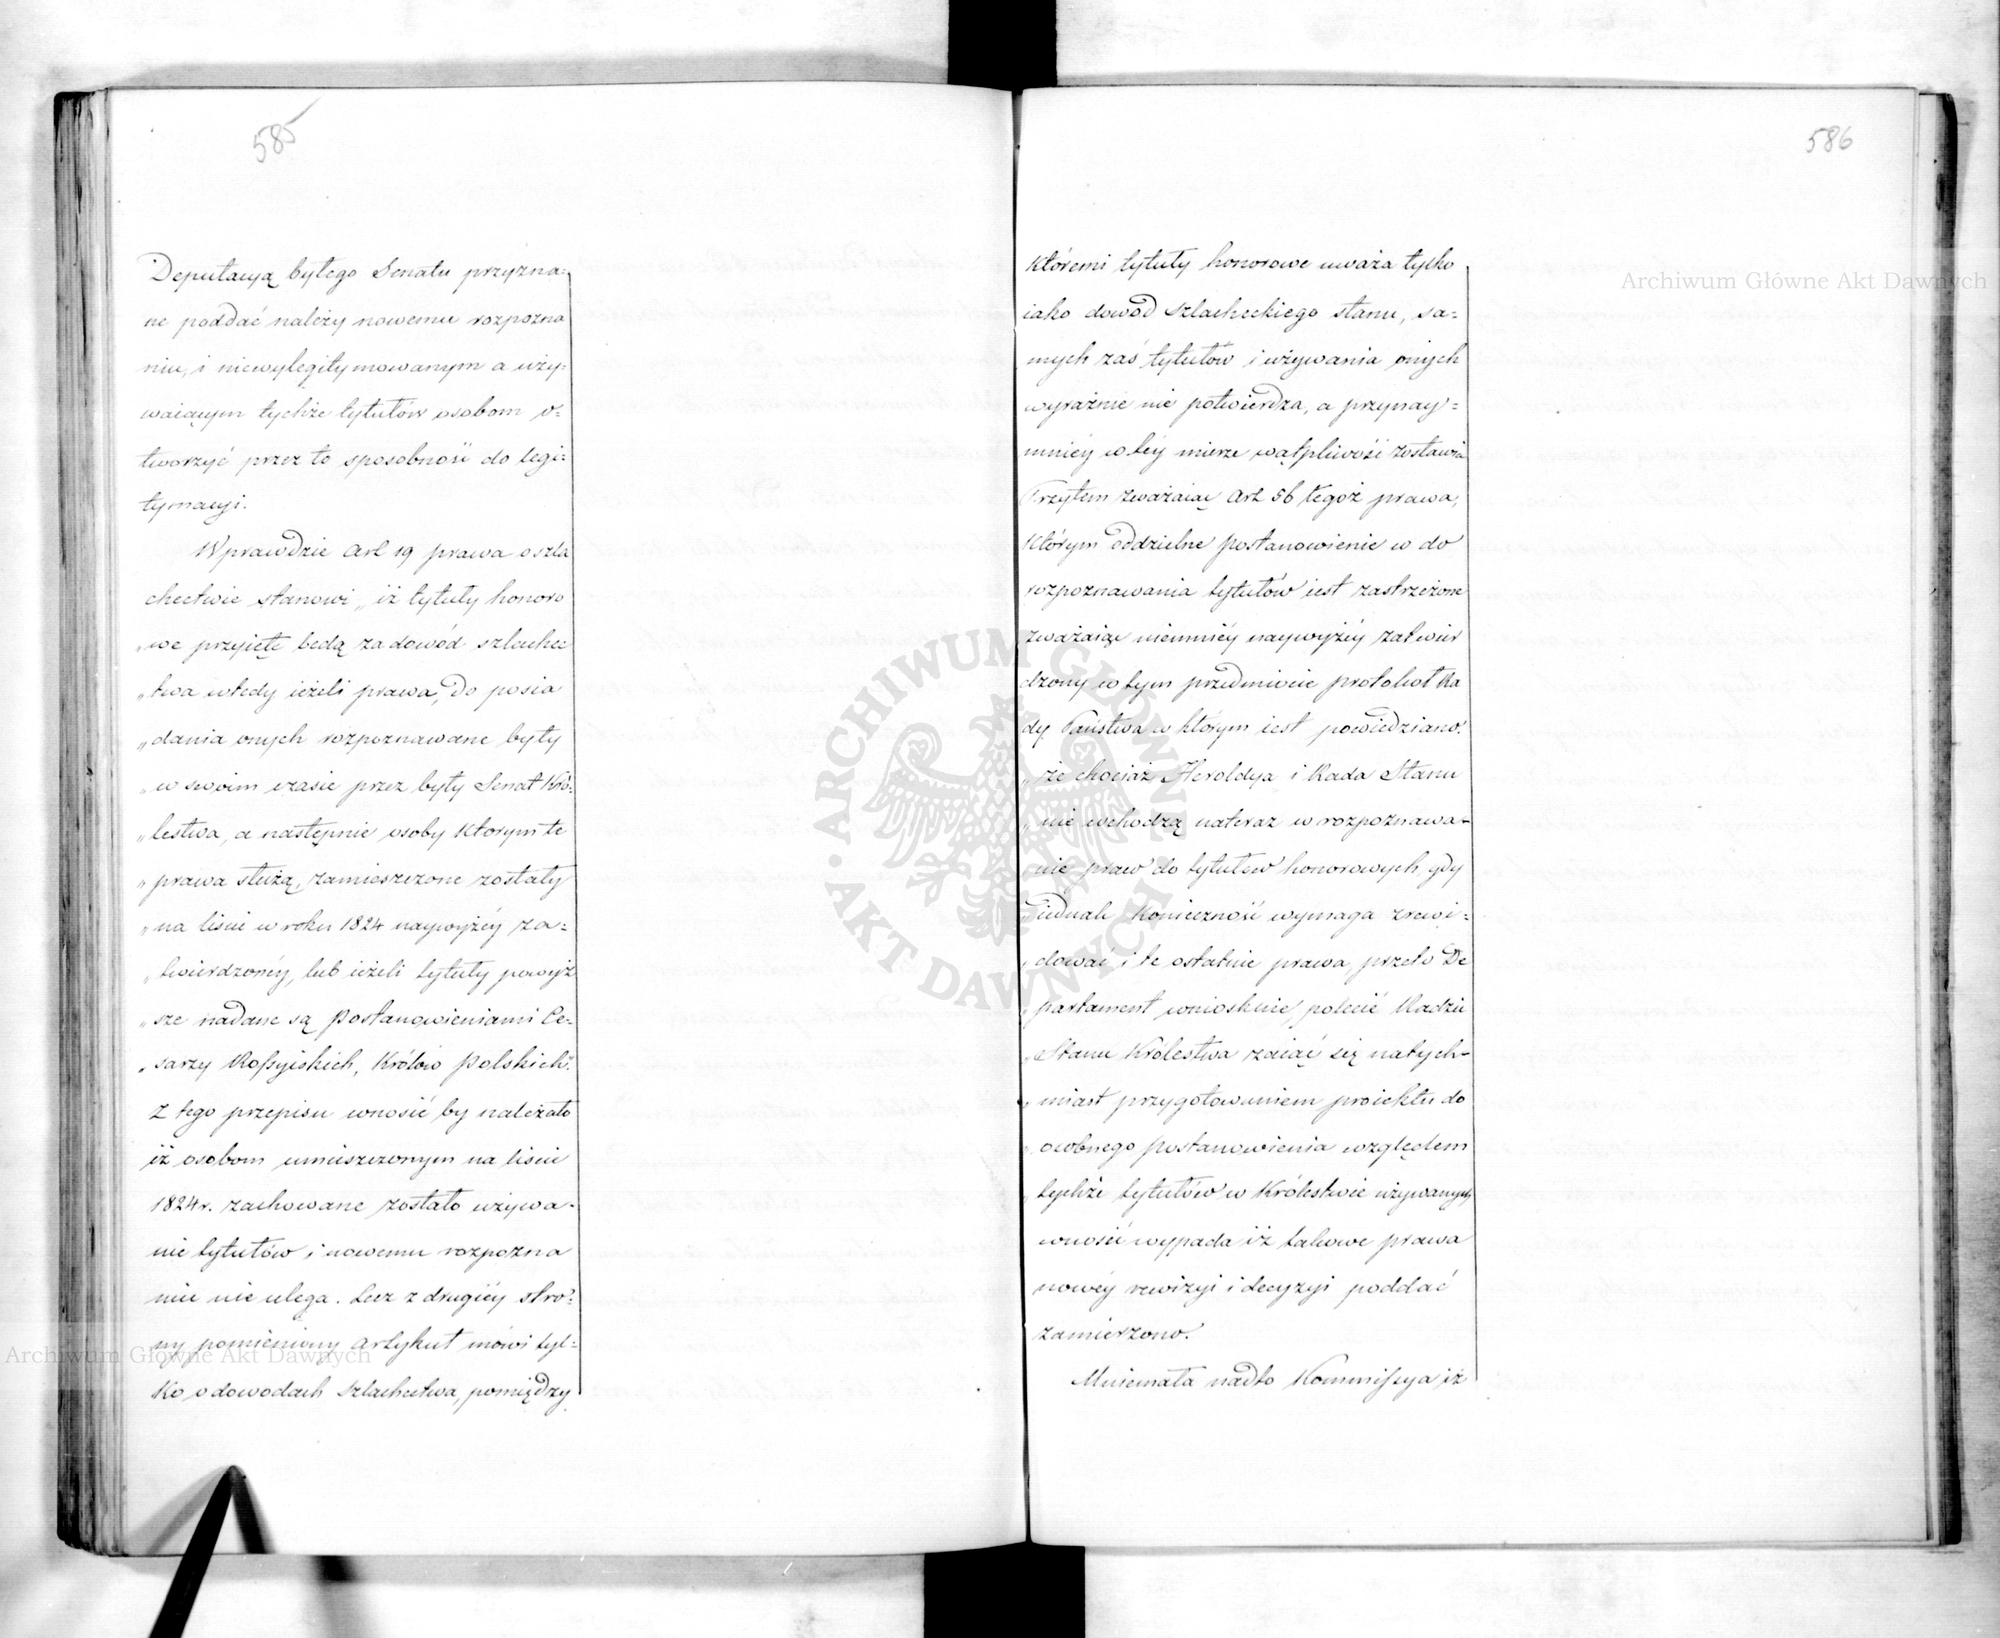 585
Deputacyą byłego Senatu przyzna=
ne poddać należy nowemu rozpozna
niu, i niewylegitymowanym a uży=
waiącym tychże tytułów osobom o=
tworzyć przez to sposobność do legi=
tymacyi.
Wprawdzie Art 19 prawa o szla
chectwie stanowi „iż tytuły honoro
„we przyięte bedą za dowód szlachec
„twa wtedy ieżeli prawa, do posia
„dania onych rozpoznawane były
„w swoim czasie przez były Senat Kró=
„lestwa, a następnie osoby ktorym te
„prawa służą, zamieszczone zostały
„na liście w roku 1824 naywyżéy za=
„twierdzonéy, lub ieżeli tytuły powyż
„sze nadane są postanowieniami Ce=
„sarzy Rossyiskich, Królów Polskich".
Z tego przepisu wnosić by należało
iż osobom umieszczonym na liście
1824r. zachowane zostało używa-
nie tytułów i nowemu rozpozna
niu nie ulega. Lecz z drugiéy stro=
ny pomieniony Artykuł mówi tyl=
ko o dowodach szlachectwa, pomiędzy
586
któremi tytuły honorowe uważa tylko
iako dowód szlacheckiego stanu, sa=
mych zaś tytułów i używania onych
wyraźnie nie potwierdza, a przynay=
mniéy w téy mierze wątpliwość zostawia
Przytem zważaiąc Art 56 tegoż prawa,
którym oddzielne postanowienie w do
rozpoznawania tytułów iest zastrzeżone
zważaiąc niemniéy naywyżéy zatwier
dzony w tym przedmiocie protokół Ra
dy Państwa w którym iest powiedziano:
„że chociaż Heroldya i Rada Stanu
„nie wchodzą nateraz w rozpoznawa-
„nie praw do tytułów honorowych, gdy
„iednak konieczność wymaga zrewi=
„dować i te ostatnie prawa, przeto De
„partament wnioskuie, polecić Radzie
„Stanu Królestwa zaiąć się natych-
„miast przygotowaniem proiektu do
„osobnego postanowienia względem
tychże tytułów w Królestwie używanych,
wnosić wypada iż takowe prawa
nowéy rewizyi i decyzyi poddać
zamierzono.
Mniemała nadto Kommissya iż
Archiwum Główne Akt Dawnych
Archiwum Główne Akt Dawnych
ARCHIWUM GŁÓWNE AKT DAWNYCH